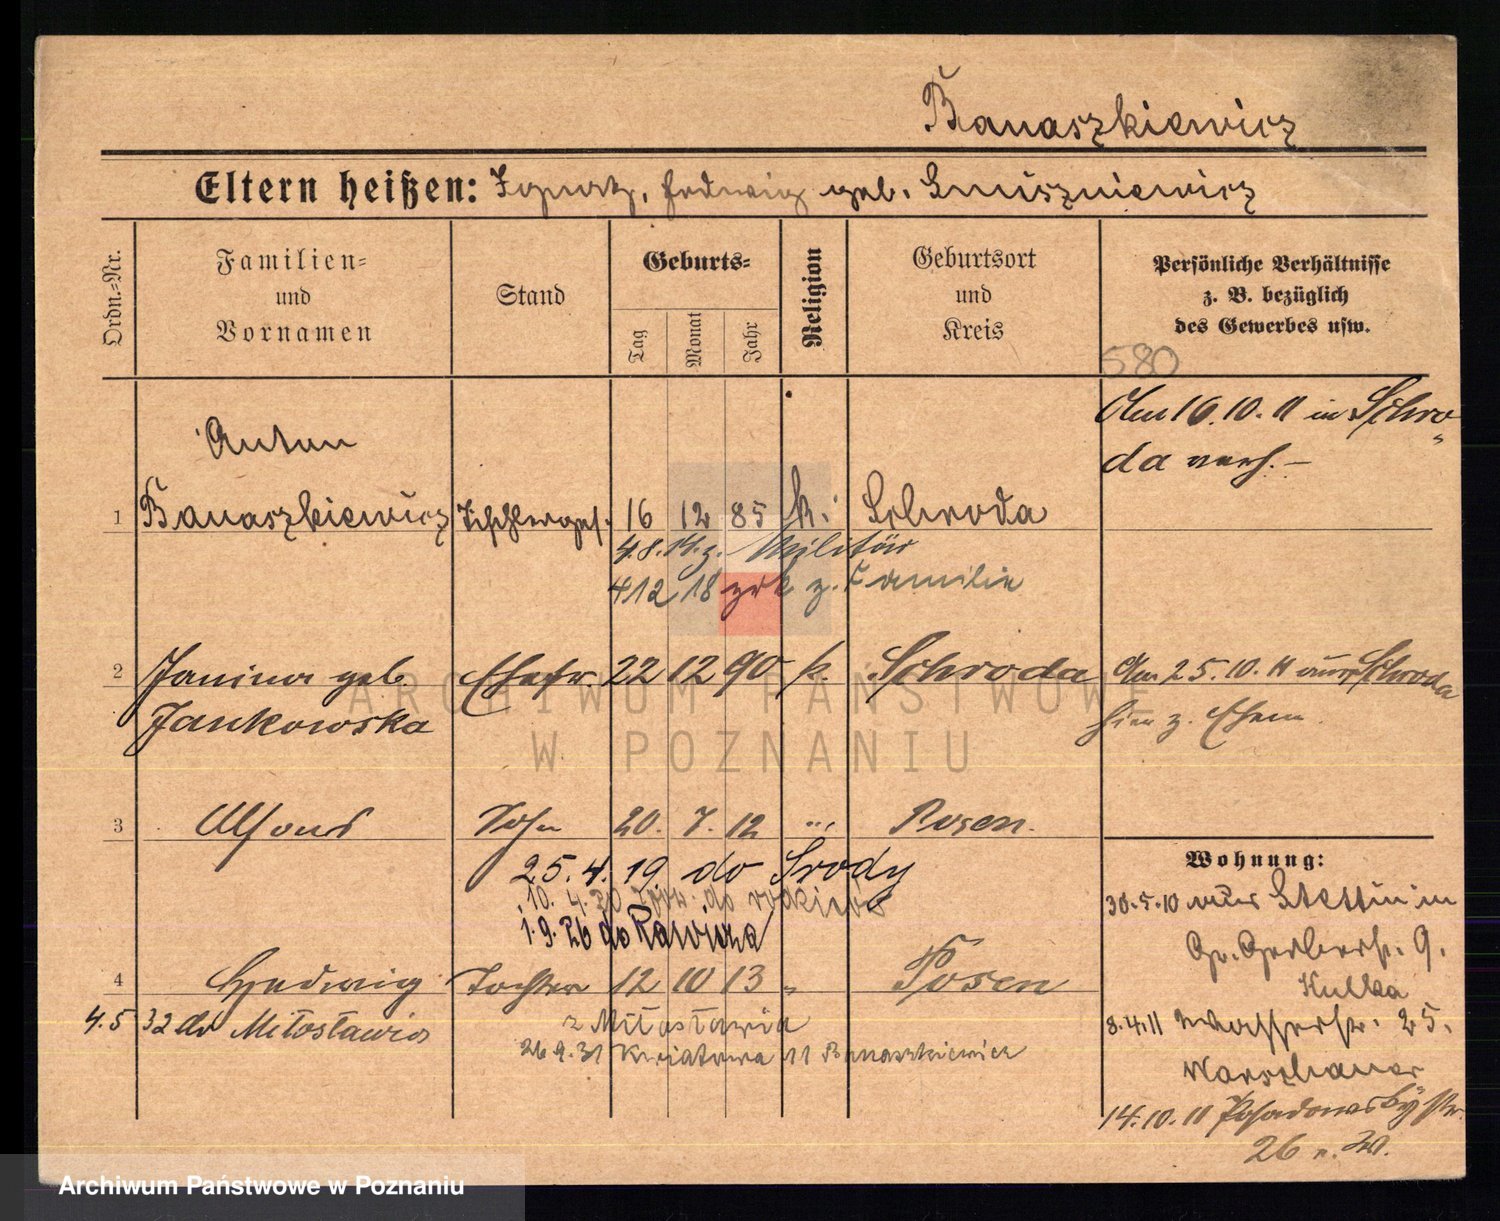 Banaszkiewicz
Eltern heißen: Ignatz, Hedwig geb.
Ordn.=Nr.
Familien=
und
Vornamen
Stand
Geburts=
Tag
Monat
Jahr
Religion
Geburtsort
und
Kreis
Persönliche Verhältnisse
z. B. bezüglich
des Gewerbes usw.
580
Anton
1 Banaszkiewicz Tischlerges. 16 12 85 k. Schroda
Am 16.10.11 in Schro
da verh. –
4.8.14. z. Militär
4 12 18 zrk z. Familie
2 Janina geb. Ehefr. 22 12 90 k. Schroda
Jankowska
Am 25.10.11 aus Schroda
hier z. Ehem.
3 Alfons Sohn 20. 7. 12 " Posen.
25.4.19. do Środy
10. 4. 20 do rodziców
1.9.26 do Rawicza
4 Hedwig Tochter 12 10 13 " Posen
4.5 32 do Miłosławia
z Miłosławia
26.9.31 Kwiatowa 11 Banaszkiewicz
Wohnung:
30.5.10 aus Stettin in
Gr. Gerberstr. 9.
Kulka
8.4.11 Wasserstr. 25.
Warschauer
14.10.11 Posadowskystr.
26 n. W.
ARCHIWUM PAŃSTWOWE
W POZNANIU
Archiwum Państwowe w Poznaniu